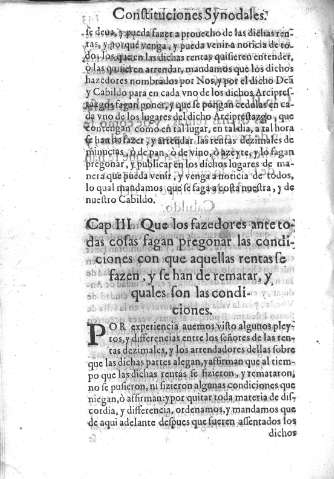 Constituciones Synodales.
se deua, y pueda fazer a prouecho de las dichas ren-
tas, y porque venga, y pueda venir a noticia de to-
do, los que en las dichas rentas quisieren entender,
ò las quisieren arrendar, mandamos que los dichos
hazedores nombrados por Nos, y por el dicho Deã
y Cabildo para en cada vno de los dichos Arcipres-
tazgos fagan poner, y que se pongan cedulas en ca-
da vno de los lugares del dicho Arciprestazgo, que
contengan como en tal lugar, en tal dia, a tal hora
se han de fazer, y arrendar las rentas dezimales de
minucias, ò de pan, ò de vino, ò azeyte, y lo fagan
pregonar, y publicar en los dichos lugares de ma-
nera que pueda venir, y venga a noticia de todos,
lo qual mandamos que se faga a costa nuestra, y de
nuestro Cabildo.
Cap III. Que los fazedores ante to-
das cosas fagan pregonar las condi-
ciones con que aquellas rentas se
fazen, y se han de rematar, y
quales son las condi-
ciones.
POR experiencia auemos visto algunos pley-
tos, y differencias entre los señores de las ren-
tas dezimales, y los arrendadores dellas sobre
que las dichas partes alegan, y afirman que al tiem-
po que las dichas rentas se fizieron, y remataron,
no se pusieron, ni fizieron algunas condiciones que
niegan, ò affirman: y por quitar toda materia de dis-
cordia, y differencia, ordenamos, y mandamos que
de aqui adelante despues que fueren assentados los
dichos